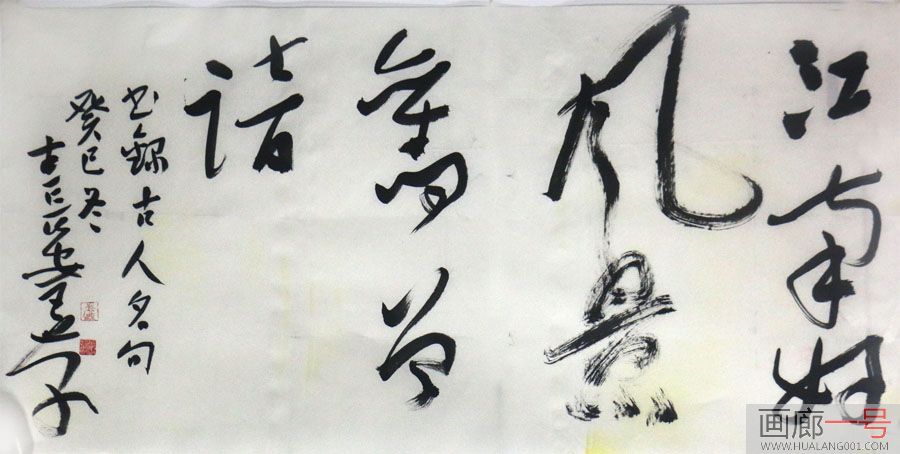 江南好
风景
舊曾
谙
书錄古人名句
癸巳冬
画廊一号
WWW.HUALANG001.COM